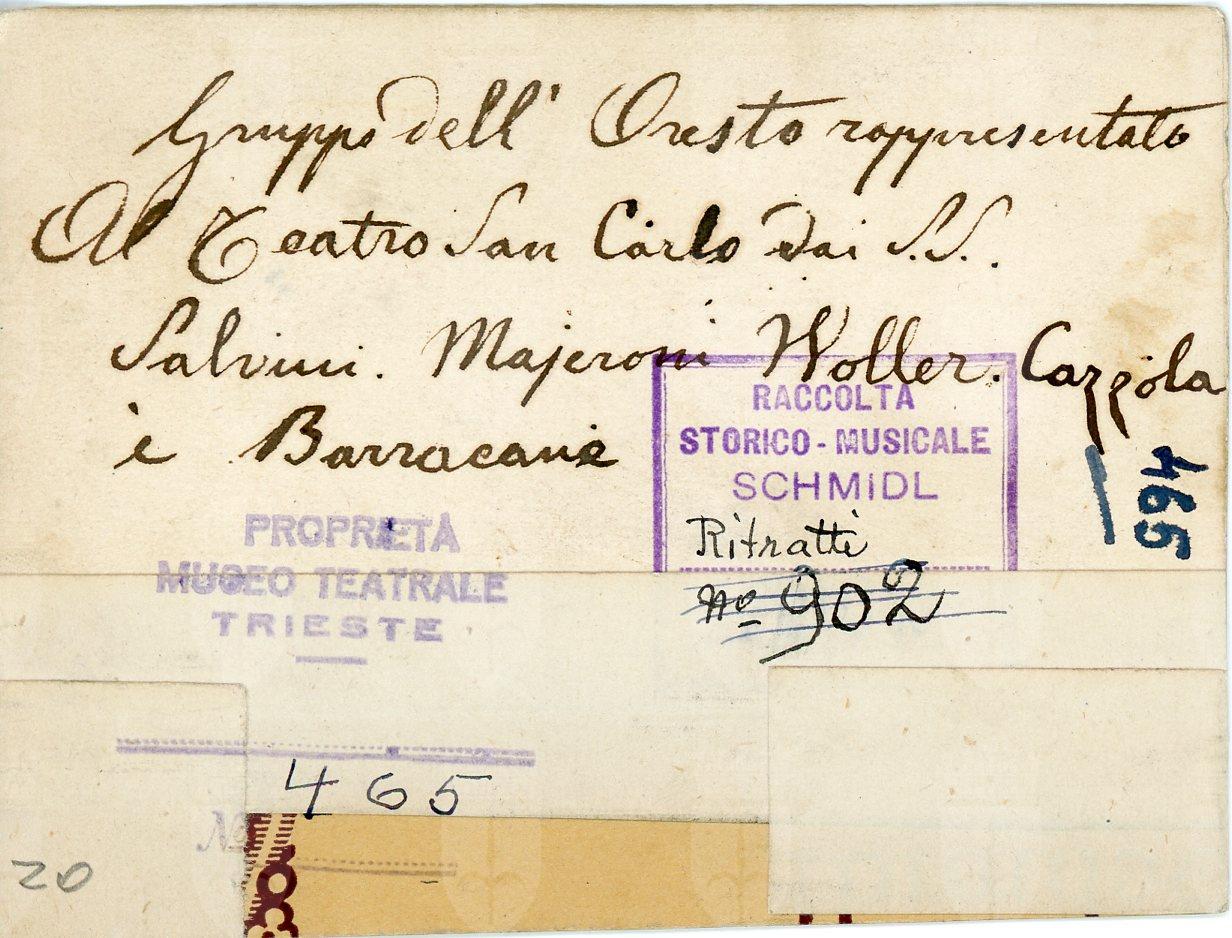 Gruppo dell' Oresto rappresentato
Al Teatro San Carlo dai S.S.
Salvini. Majeroni Woller. Cazzola
è Barracane
RACCOLTA
STORICO - MUSICALE
SCHMIDL
Ritratti
No 902
465
PROPRIETÀ
MUSEO TEATRALE
TRIESTE
465
No
20